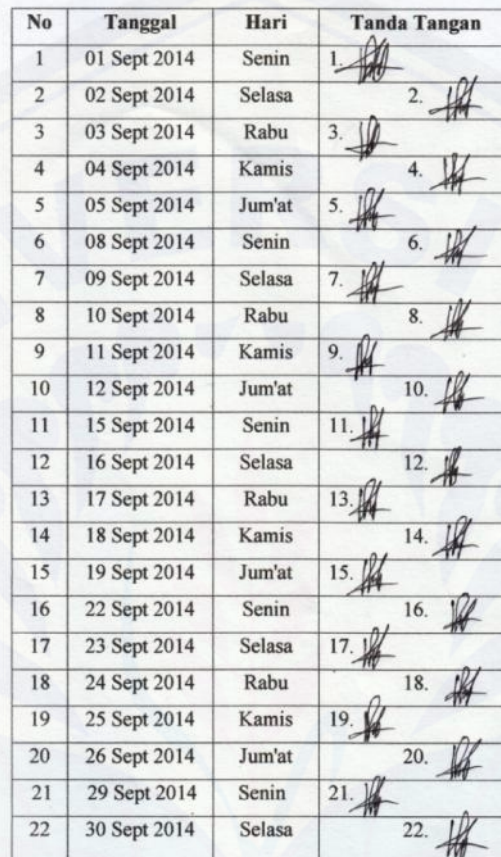 No Tanggal Hari Tanda Tangan
1 01 Sept 2014 Senin 1.
2 02 Sept 2014 Selasa 2.
3 03 Sept 2014 Rabu 3.
4 04 Sept 2014 Kamis 4.
5 05 Sept 2014 Jum'at 5.
6 08 Sept 2014 Senin 6.
7 09 Sept 2014 Selasa 7.
8 10 Sept 2014 Rabu 8.
9 11 Sept 2014 Kamis 9.
10 12 Sept 2014 Jum'at 10.
11 15 Sept 2014 Senin 11.
12 16 Sept 2014 Selasa 12.
13 17 Sept 2014 Rabu 13.
14 18 Sept 2014 Kamis 14.
15 19 Sept 2014 Jum'at 15.
16 22 Sept 2014 Senin 16.
17 23 Sept 2014 Selasa 17.
18 24 Sept 2014 Rabu 18.
19 25 Sept 2014 Kamis 19.
20 26 Sept 2014 Jum'at 20.
21 29 Sept 2014 Senin 21.
22 30 Sept 2014 Selasa 22.